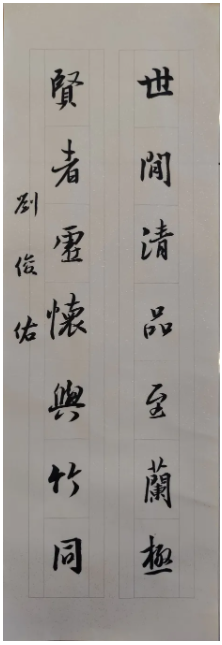 世間清品至蘭極
賢者虛懷與竹同
劉俊佑